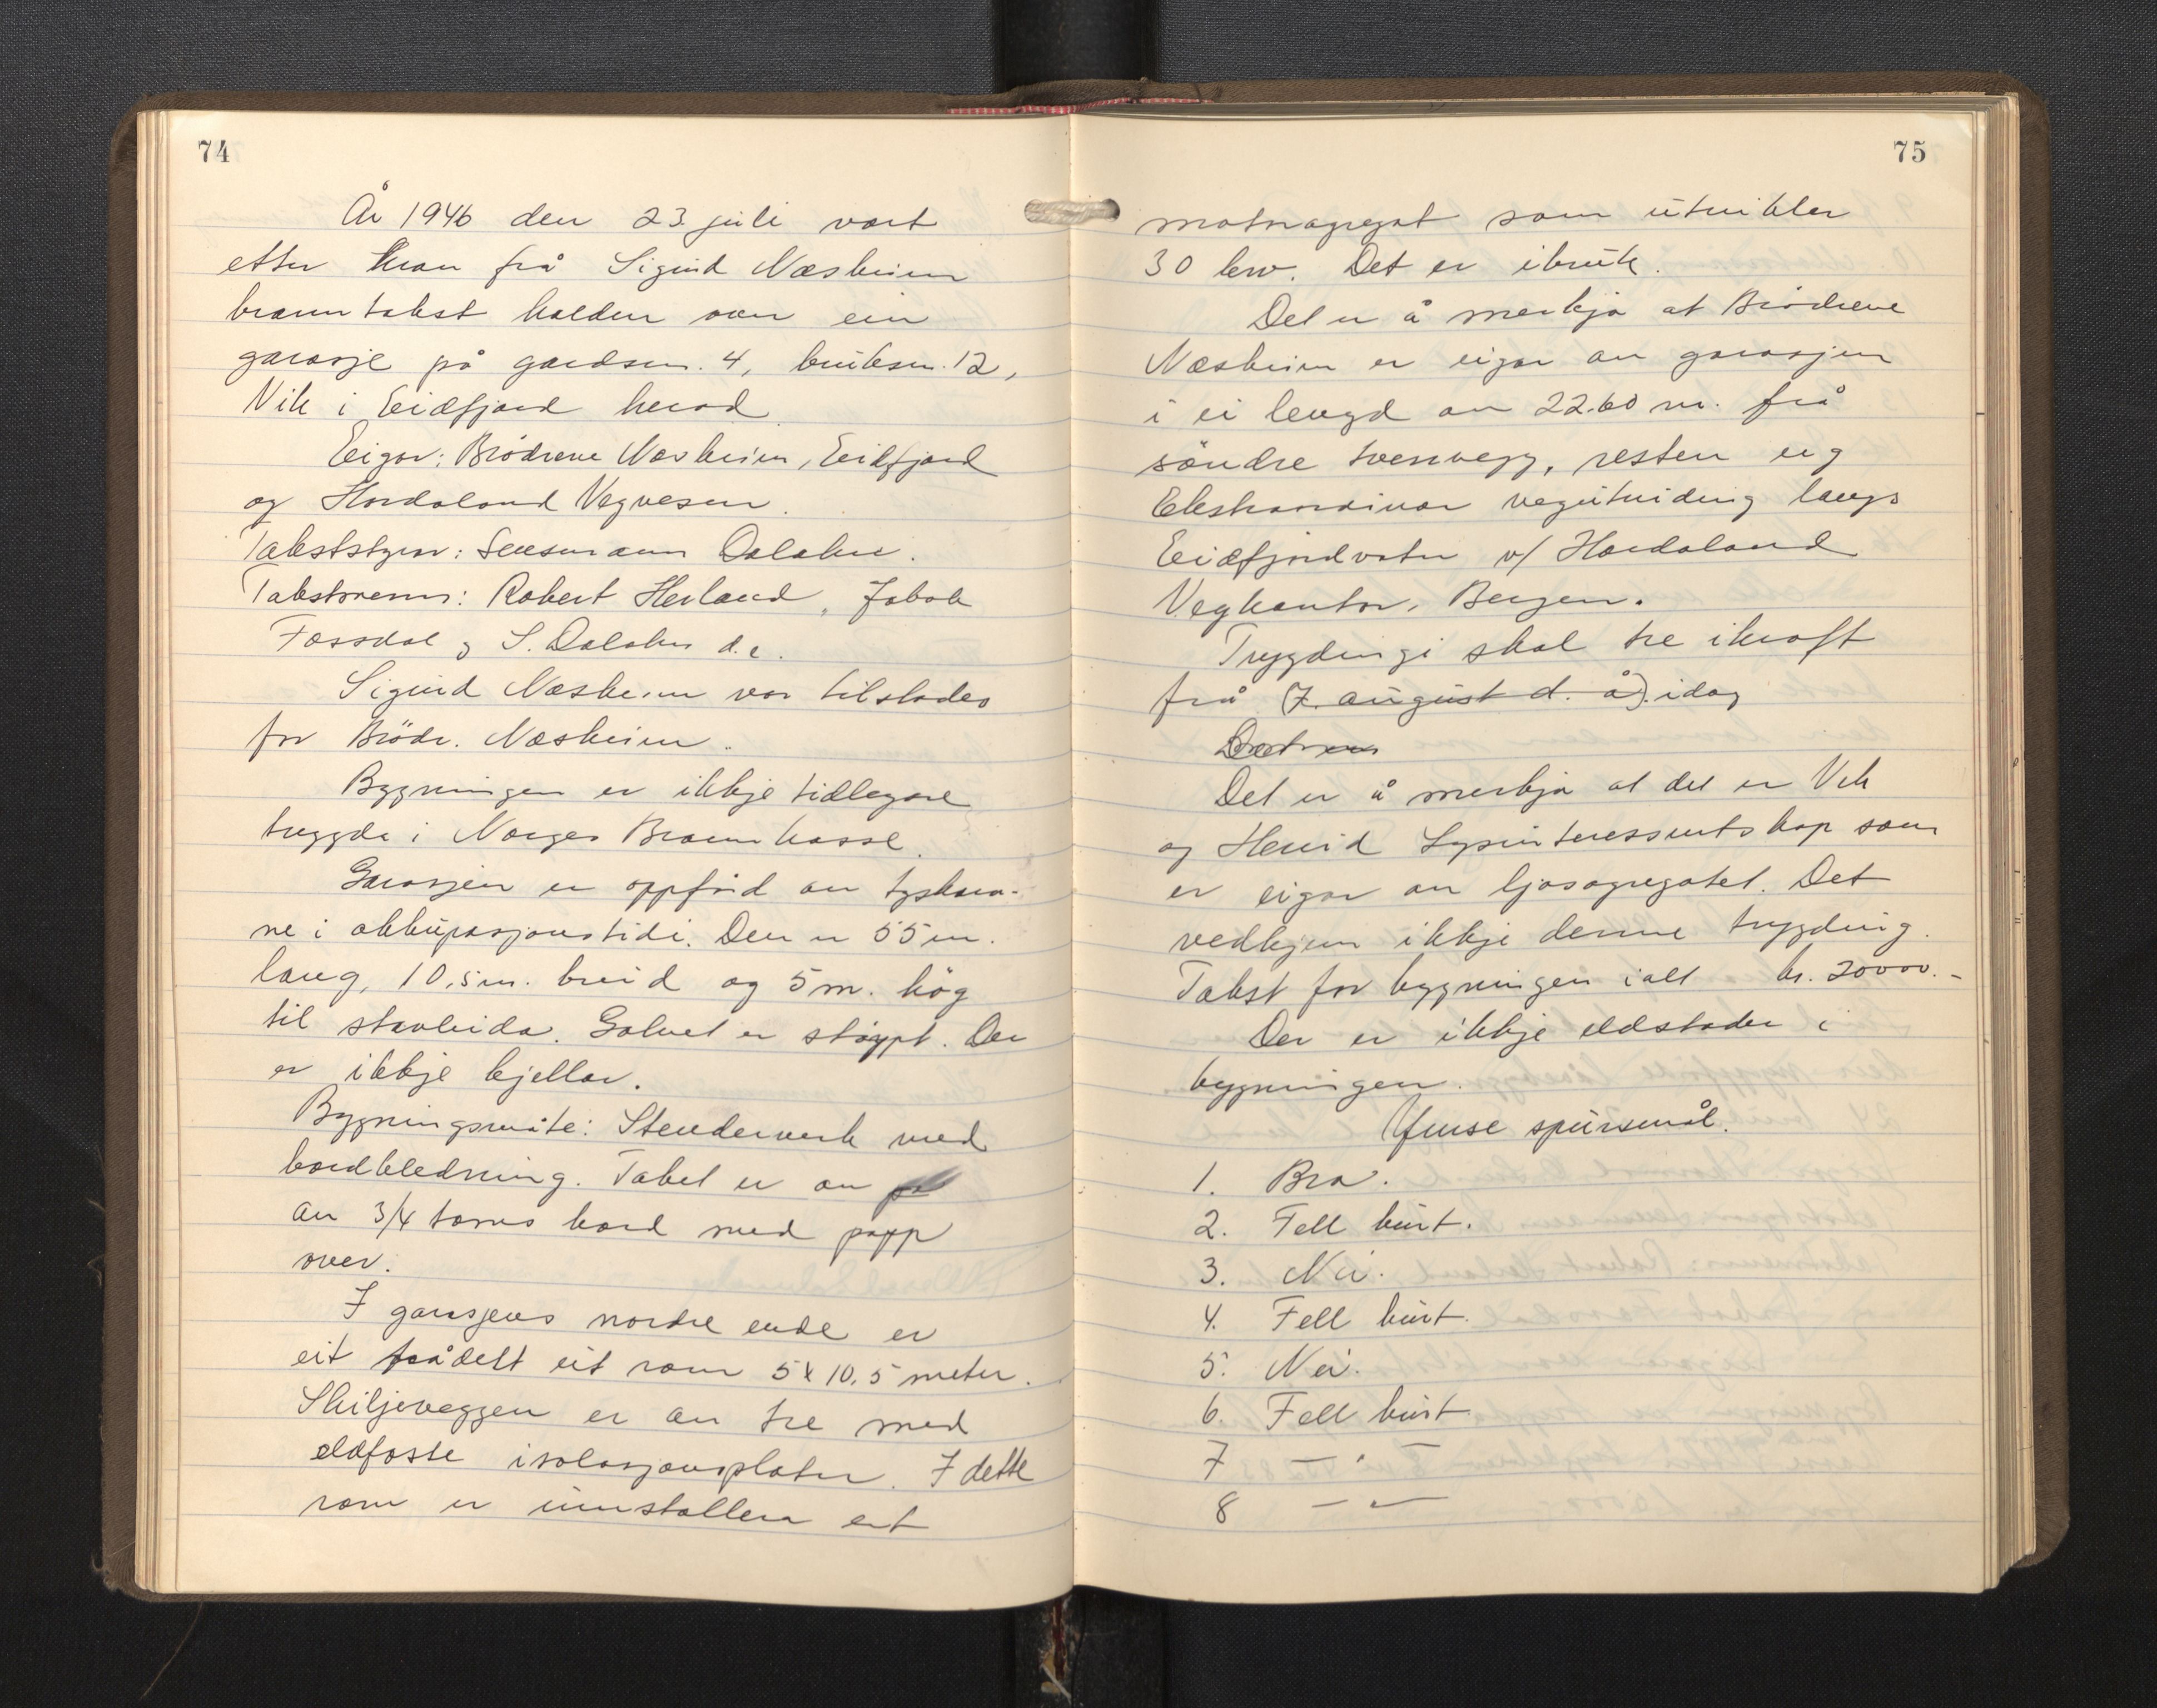 74
År 1946 den 23. juli vart
etter krav frå Sigurd Næsheim
branntakst halden over ein
garasje på gardsnr. 4, bruksnr. 12,
Vik i Eidfjord herad
Eigar: Brödrene Næsheim, Eidfjord
og Hordaland Vegvesen.
Takststyrar: Lensmann Dalaker.
Takstmenn: Robert Herland, Jakob
Fossdal og S. Dalaker d.e.
Sigurd Næsheim var tilstades
for Brödr. Næsheim.
Bygningen er ikkje tidlegare
trygda i Norges Brannkasse.
Garasjen er oppförd av tyskara-
ne i okkupasjonstidi. Den er 55 m.
lang, 10,5 m. breid og 5 m. hög
til stavleida. Golvet er støypt. Der
er ikkje kjellar.
Bygningsmåte: Stenderverk med
bordkledning. Taket er av på
av 3/4 toms bord med papp
over.
I garasjens nordre ende er
eit frådelt eit rom 5 x 10,5 meter.
Skiljeveggen er av tre med
eldfaste isolasjonsplater. I dette
rom er innstallera eit
75
motoragregat som utvikler
30 kw. Det er ibruk.
Det er å merkja at Brödrene
Næsheim er eigar av garasjen
i ei lengd av 22.60 m. frå
söndre tverrvegg, resten eig
Ekstraordinær vegutviding langs
Eidfjordvatn v/ Hordaland
Vegkontor, Bergen.
Trygdingi skal tre ikraft
frå (7. august d. å). idag
Det er å merkja at det er Vik
og Hereid Lysinteressentskap som
er eigar av ljosagregatet. Det
vedkjem ikkje denne trygding.
Takst for bygningen ialt kr. 20000.-
Der er ikkje eldstader i
bygningen.
Ymse spursmål.
1. Bra.
2. Fell burt.
3. Nei.
4. Fell burt.
5. Nei.
6. Fell burt.
7 — " —
8 — " —